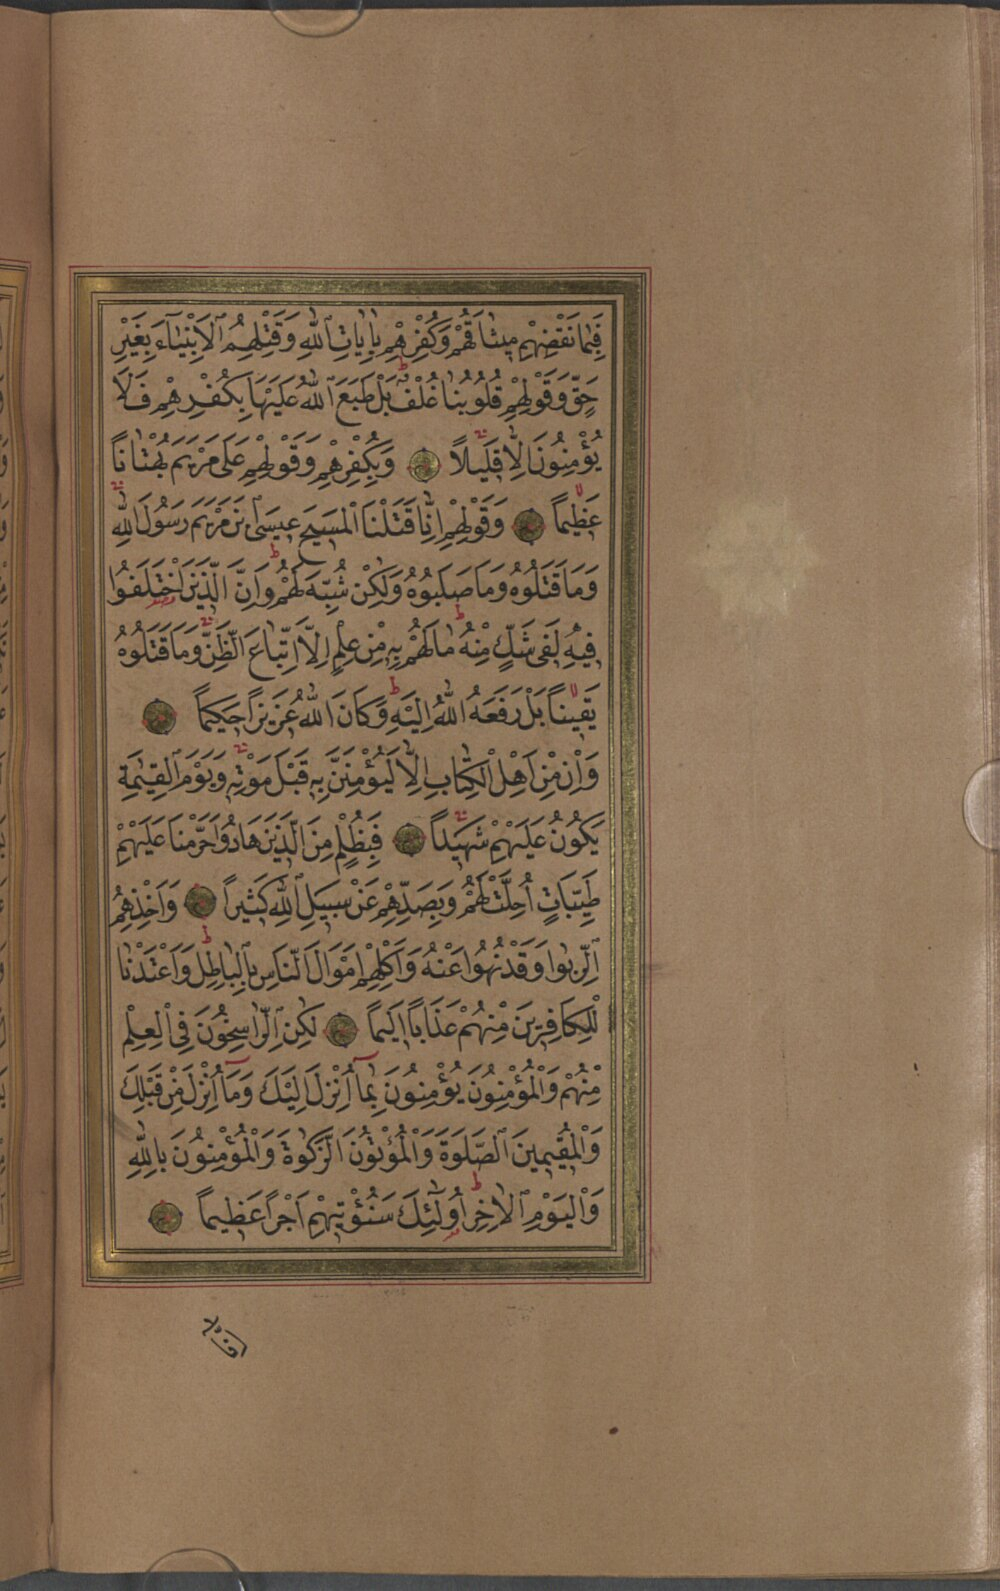 فَبِمَا نَقْضِهِمْ مِيثَاقَهُمْ وَكُفْرِهِمْ بِاٰيَاتِ اللّٰهِ وَقَتْلِهِمُ الْاَنْبِيَٓاءَ بِغَيْرِ
حَقٍّ وَقَوْلِهِمْ قُلُوبُنَا غُلْفٌ بَلْ طَبَعَ اللّٰهُ عَلَيْهَا بِكُفْرِهِمْ فَلَا
يُؤْمِنُونَ اِلَّا قَلِيلًا وَبِكُفْرِهِمْ وَقَوْلِهِمْ عَلٰى مَرْيَمَ بُهْتَانًا
عَظِيمًا وَقَوْلِهِمْ اِنَّا قَتَلْنَا الْمَسِيحَ عِيسَى ابْنَ مَرْيَمَ رَسُولَ اللّٰهِ
وَمَا قَتَلُوهُ وَمَا صَلَبُوهُ وَلٰكِنْ شُبِّهَ لَهُمْ وَاِنَّ الَّذِينَ اخْتَلَفُوا
فِيهِ لَفِى شَكٍّ مِنْهُ مَا لَهُمْ بِهِ مِنْ عِلْمٍ اِلَّا اتِّبَاعَ الظَّنِّ وَمَا قَتَلُوهُ
يَقِينًا بَلْ رَفَعَهُ اللّٰهُ اِلَيْهِ وَكَانَ اللّٰهُ عَزِيزًا حَكِيمًا
وَاِنْ مِنْ اَهْلِ الْكِتَابِ اِلَّا لَيُؤْمِنَنَّ بِهِ قَبْلَ مَوْتِهِ وَيَوْمَ الْقِيٰمَةِ
يَكُونُ عَلَيْهِمْ شَهِيدًا فَبِظُلْمٍ مِنَ الَّذِينَ هَادُوا حَرَّمْنَا عَلَيْهِمْ
طَيِّبَاتٍ اُحِلَّتْ لَهُمْ وَبِصَدِّهِمْ عَنْ سَبِيلِ اللّٰهِ كَثِيرًا وَاَخْذِهِمُ
الرِّبٰوا وَقَدْ نُهُوا عَنْهُ وَاَكْلِهِمْ اَمْوَالَ النَّاسِ بِالْبَاطِلِ وَاَعْتَدْنَا
لِلْكَافِرِينَ مِنْهُمْ عَذَابًا اَلِيمًا لٰكِنِ الرَّاسِخُونَ فِى الْعِلْمِ
مِنْهُمْ وَالْمُؤْمِنُونَ يُؤْمِنُونَ بِمَٓا اُنْزِلَ اِلَيْكَ وَمَٓا اُنْزِلَ مِنْ قَبْلِكَ
وَالْمُقِيمِينَ الصَّلٰوةَ وَالْمُؤْتُونَ الزَّكٰوةَ وَالْمُؤْمِنُونَ بِاللّٰهِ
وَالْيَوْمِ الْاٰخِرِ اُولٰٓئِكَ سَنُؤْتِيهِمْ اَجْرًا عَظِيمًا